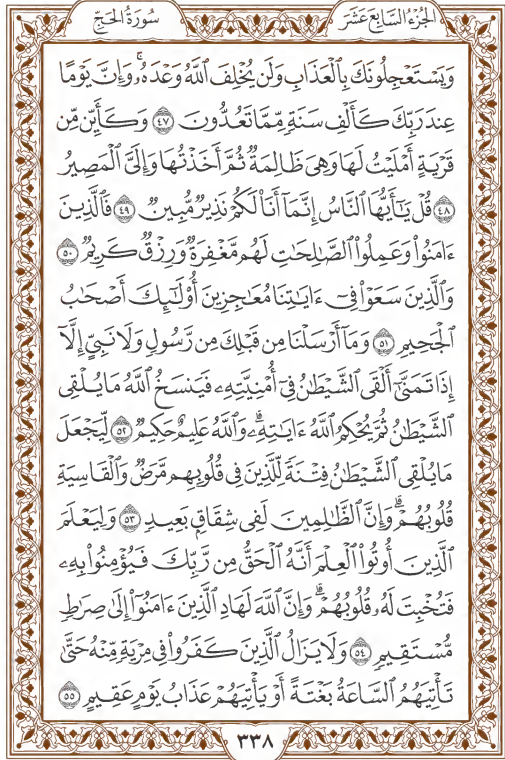 الجُزْءُ السَّابِعَ عَشَرَ
سُورَةُ الحَجّ
وَيَسْتَعْجِلُونَكَ بِٱلْعَذَابِ وَلَن يُخْلِفَ ٱللَّهُ وَعْدَهُۥۚ وَإِنَّ يَوْمًا
عِندَ رَبِّكَ كَأَلْفِ سَنَةٍ مِّمَّا تَعُدُّونَ ٤٧ وَكَأَيِّن مِّن
قَرْيَةٍ أَمْلَيْتُ لَهَا وَهِىَ ظَالِمَةٌ ثُمَّ أَخَذْتُهَا وَإِلَىَّ ٱلْمَصِيرُ
٤٨ قُلْ يَـٰٓأَيُّهَا ٱلنَّاسُ إِنَّمَآ أَنَا۠ لَكُمْ نَذِيرٌ مُّبِينٌ ٤٩ فَٱلَّذِينَ
ءَامَنُوا۟ وَعَمِلُوا۟ ٱلصَّـٰلِحَـٰتِ لَهُم مَّغْفِرَةٌ وَرِزْقٌ كَرِيمٌ ٥٠
وَٱلَّذِينَ سَعَوْا۟ فِىٓ ءَايَـٰتِنَا مُعَـٰجِزِينَ أُو۟لَـٰٓئِكَ أَصْحَـٰبُ
ٱلْجَحِيمِ ٥١ وَمَآ أَرْسَلْنَا مِن قَبْلِكَ مِن رَّسُولٍ وَلَا نَبِىٍّ إِلَّآ
إِذَا تَمَنَّىٰٓ أَلْقَى ٱلشَّيْطَـٰنُ فِىٓ أُمْنِيَّتِهِۦ فَيَنسَخُ ٱللَّهُ مَا يُلْقِى
ٱلشَّيْطَـٰنُ ثُمَّ يُحْكِمُ ٱللَّهُ ءَايَـٰتِهِۦۗ وَٱللَّهُ عَلِيمٌ حَكِيمٌ ٥٢ لِّيَجْعَلَ
مَا يُلْقِى ٱلشَّيْطَـٰنُ فِتْنَةً لِّلَّذِينَ فِى قُلُوبِهِم مَّرَضٌ وَٱلْقَاسِيَةِ
قُلُوبُهُمْۗ وَإِنَّ ٱلظَّـٰلِمِينَ لَفِى شِقَاقٍۭ بَعِيدٍ ٥٣ وَلِيَعْلَمَ
ٱلَّذِينَ أُوتُوا۟ ٱلْعِلْمَ أَنَّهُ ٱلْحَقُّ مِن رَّبِّكَ فَيُؤْمِنُوا۟ بِهِۦ
فَتُخْبِتَ لَهُۥ قُلُوبُهُمْۗ وَإِنَّ ٱللَّهَ لَهَادِ ٱلَّذِينَ ءَامَنُوٓا۟ إِلَىٰ صِرَٰطٍ
مُّسْتَقِيمٍ ٥٤ وَلَا يَزَالُ ٱلَّذِينَ كَفَرُوا۟ فِى مِرْيَةٍ مِّنْهُ حَتَّىٰ
تَأْتِيَهُمُ ٱلسَّاعَةُ بَغْتَةً أَوْ يَأْتِيَهُمْ عَذَابُ يَوْمٍ عَقِيمٍ ٥٥
٣٣٨